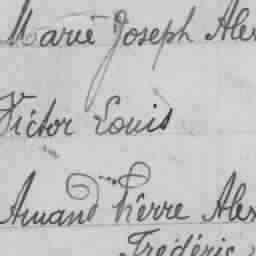 Marie Joseph Alex
Victor Louis
Amand Pierre Alex
Frédéric